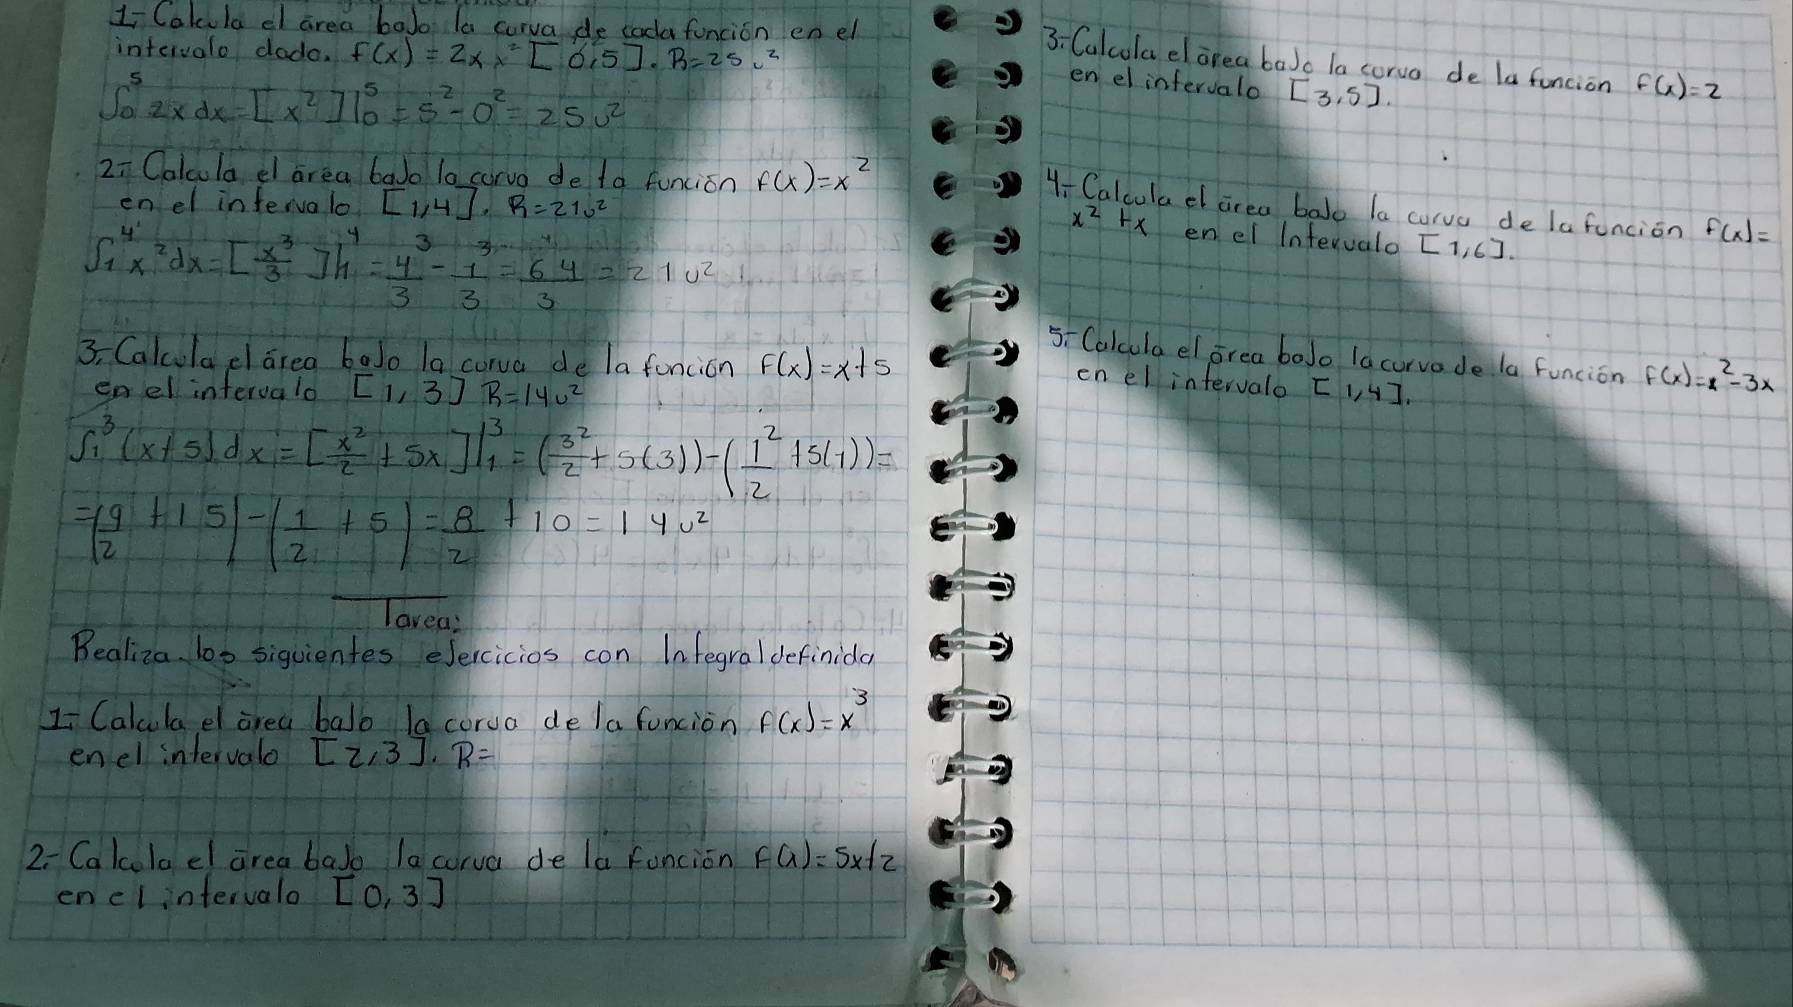 1.- Calcula el área bajo la curva de cada función en el
intervalo dado. f(x) = 2x x = [0,5]. R=25u²
∫₀⁵ 2x dx = [x²]|₀⁵ = 5² - 0² = 25u²
2.- Calcula el área bajo la curva de la función f(x)=x²
en el intervalo [1,4]. R=21u²
∫₁⁴ x² dx = [x³/3]|₁⁴ = 4³/3 - 1³/3 = 64/3 = 21u²
3.- Calcula el área bajo la curva de la función f(x)=x+5
en el intervalo [1, 3] R=14u²
∫₁³ (x+5) dx = [x²/2 + 5x]|₁³ = (3²/2 + 5(3)) - (1²/2 + 5(1)) =
= (9/2 + 15) - (1/2 + 5) = 8/2 + 10 = 14u²
Tarea:
Realiza los siguientes ejercicios con Integral definida
1.- Calcula el área bajo la curva de la función f(x)=x³
en el intervalo [2,3]. R=
2.- Calcula el área bajo la curva de la función f(x)=5x+2
en el intervalo [0,3]
3.- Calcula el área bajo la curva de la función f(x)=2
en el intervalo [3,5].
4.- Calcula el área bajo la curva de la función f(x)=
x² + x en el Intervalo [1,6].
5.- Calcula el área bajo la curva de la Función f(x)=x²-3x
en el intervalo [1,4].